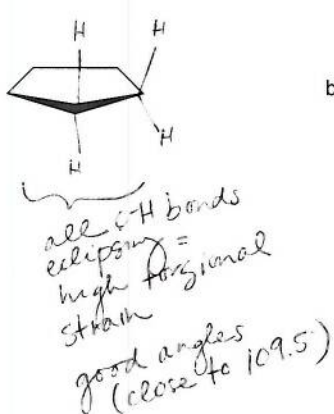 H H
b
H
H
all C-H bonds
eclipsing =
high torsional
strain
good angles
(close to 109.5)